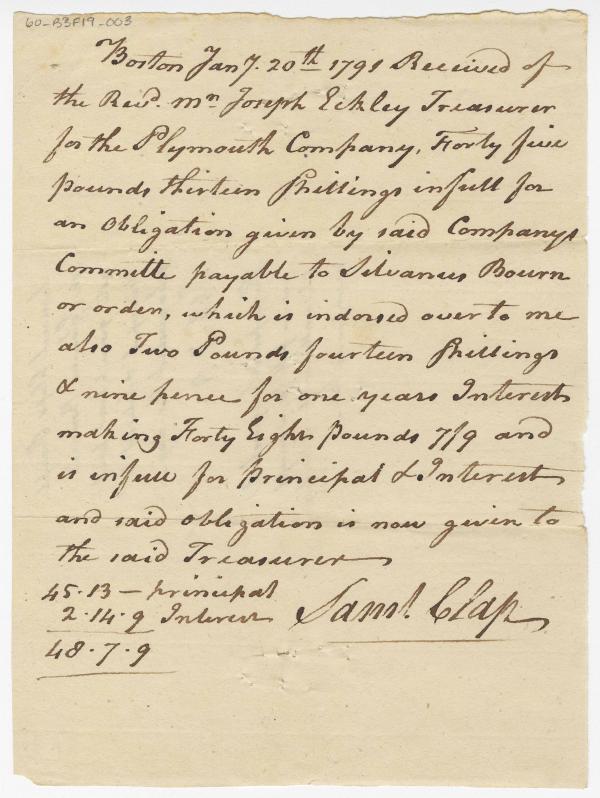 60-B3F19-003
Boston Jany. 20th 1791 Received of
the Revd. Mr. Joseph Eckley Treasurer
for the Plymouth Company, Forty five
pounds thirteen Shillings in full for
an Obligation given by said Companys
Committe payable to Silvanus Bourn
or order, which is indorsed over to me
also Two Pounds fourteen Shillings
& nine pence for one years Interest
making Forty Eight pounds 7/9 and
is in full for principal & Interest
and said obligation is now given to
the said Treasurer
45.13 — principal
2.14.9 Interest Saml. Clap
48.7.9